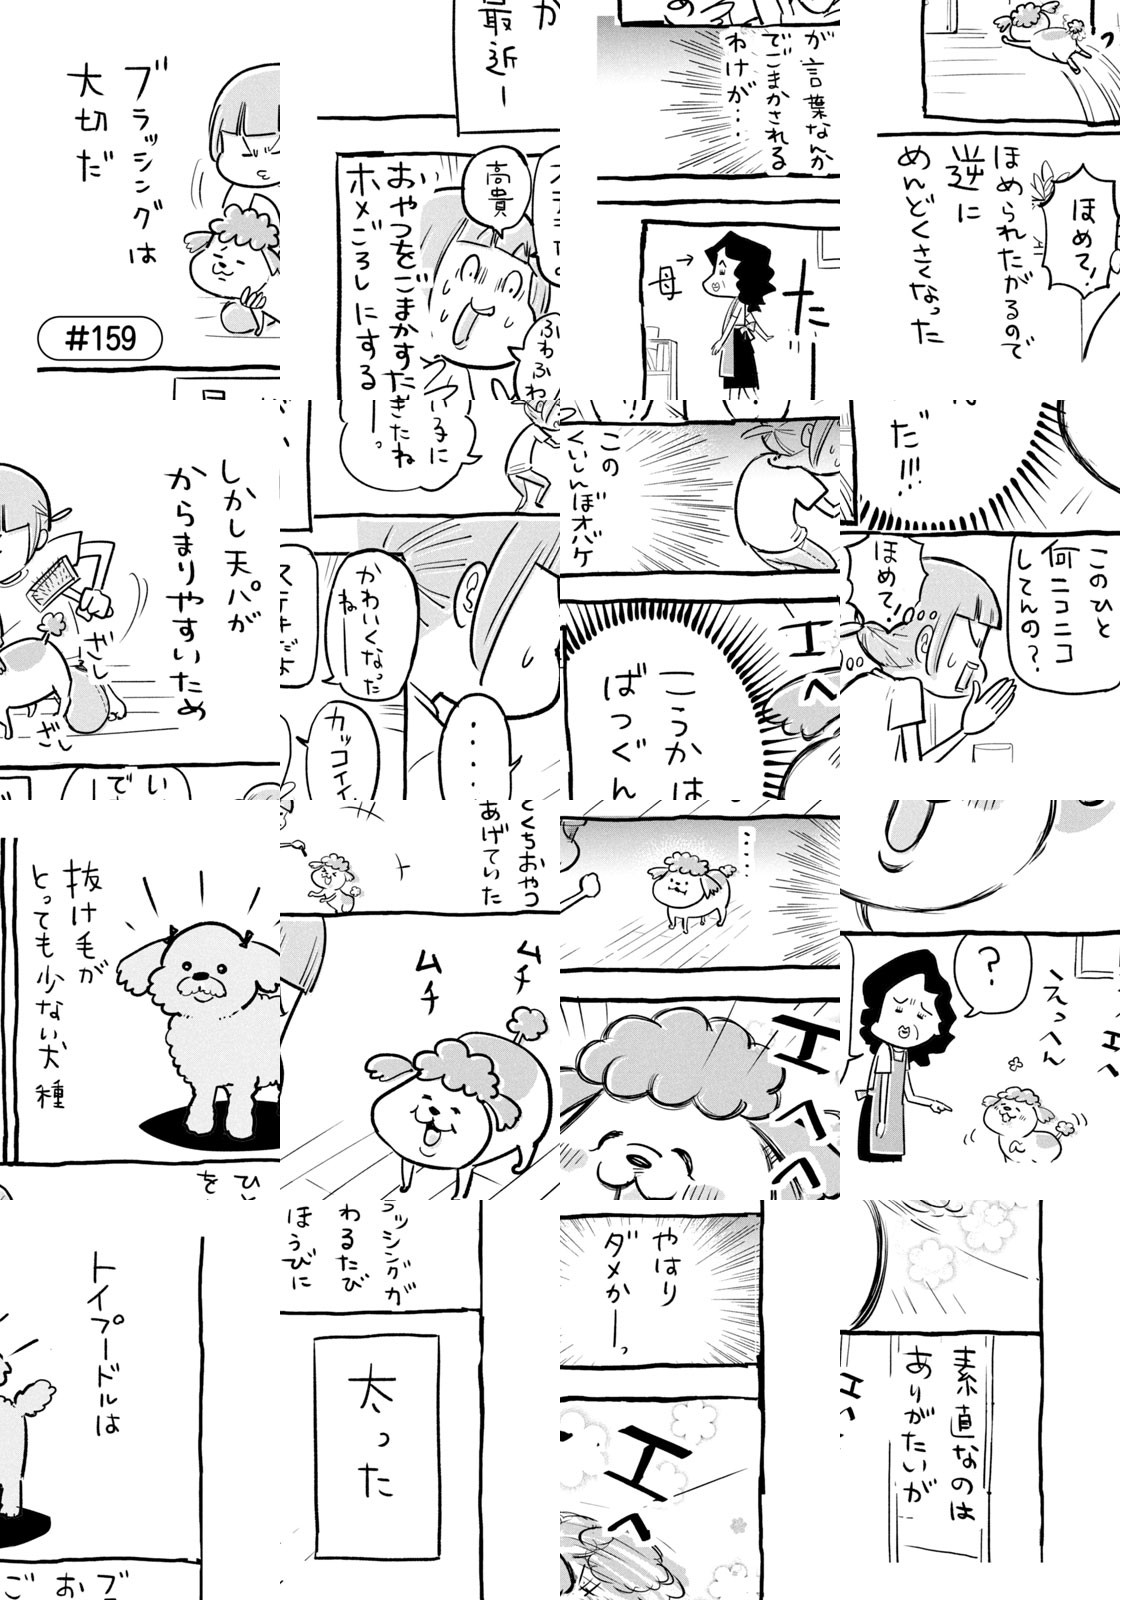 ブラッシングは
大切だ
#159
最近ー
高貴
おやつをごまかすた
ホメごろしにする
ふわふわ
が言葉なんか
でごまかされる
わけが…
母→
た
っ
ほめて!
ほめられたがるので
逆に
めんどくさくなった
しかし天パが
からまりやすいため
ざし
ざし
きたね
ーっ
いい子に
かわいくなった
ねー
カッコイイ
・・・・・
この
くいしんぼオバケ
エ
へ
こうかは
ばつぐん
だ!!!
このひと
何ニコニコ
してんの?
ほめて!
抜け毛が
とっても少ない犬種
おやつ
あげていた
ムチ
ムチ
・・・・・
エ
へ
へ
?
えっへん
エへ
トイプードルは
ラッシングが
わるたび
ほうびに
太った
やはり
ダメかーっ
エ
へ
素直なのは
ありがたいが
エ
へ